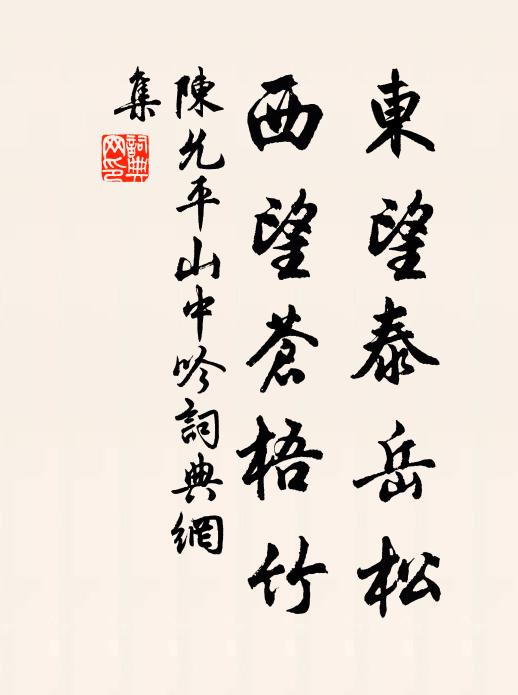 東望泰岳松
西望蒼梧竹
陳允平山中吟詞典網
集
詞典網印